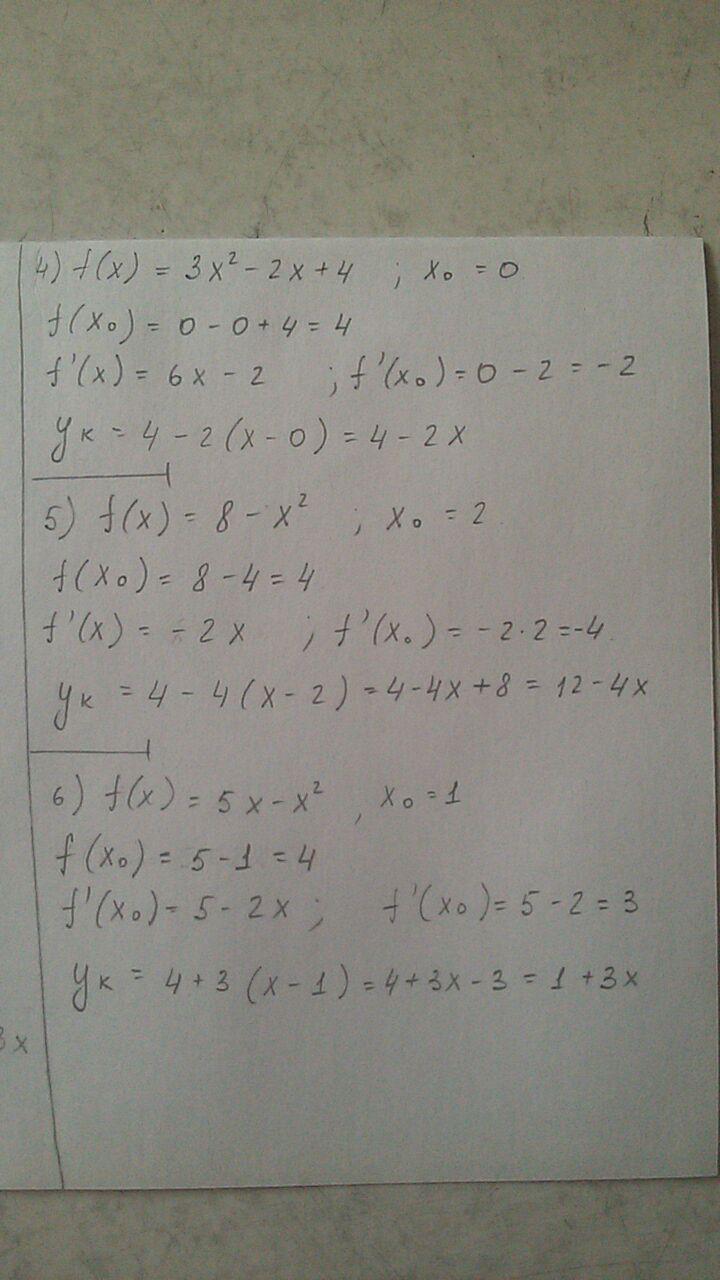 4) f(x) = 3x² - 2x + 4 ; x₀ = 0
f(x₀) = 0 - 0 + 4 = 4
f'(x) = 6x - 2 ; f'(x₀) = 0 - 2 = -2
yк = 4 - 2(x - 0) = 4 - 2x
5) f(x) = 8 - x² ; x₀ = 2
f(x₀) = 8 - 4 = 4
f'(x) = - 2x ; f'(x₀) = -2·2 = -4
yк = 4 - 4(x - 2) = 4 - 4x + 8 = 12 - 4x
6) f(x) = 5x - x² , x₀ = 1
f(x₀) = 5 - 1 = 4
f'(x₀) = 5 - 2x ; f'(x₀) = 5 - 2 = 3
yк = 4 + 3(x - 1) = 4 + 3x - 3 = 1 + 3x
3x